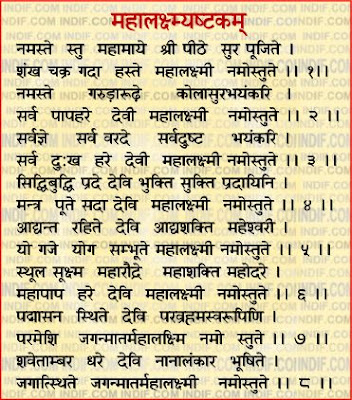 महालक्ष्म्यष्टकम्
नमस्ते स्तु महामाये श्री पीठे सुर पूजिते ।
शंख चक्र गदा हस्ते महालक्ष्मी नमोस्तुते ।। १।।
नमस्ते गरुडारूढ़े कोलासुरभयंकरि ।
सर्व पापहरे देवी महालक्ष्मी नमोस्तुते ।। २ ।।
सर्वज्ञे सर्व वरदे सर्वदुष्ट भयंकरी ।
सर्व दुःख हरे देवी महालक्ष्मी नमोस्तुते ।। ३ ।।
सिद्धिबुद्धि प्रदे देवि भुक्ति सुक्ति प्रदायिनि ।
मन्त्र पूते सदा देवि महालक्ष्मी नमोस्तुते ।। ४ ।।
आद्यन्त रहिते देवि आद्यशक्ति महेश्वरी ।
यो गजे योग सम्भूते महालक्ष्मी नमोस्तुते ।। ५ ।।
स्थूल सूक्ष्म महारौद्रे महाशक्ति महोदरे ।
महापाप हरे देवि महालक्ष्मी नमोस्तुते ।। ६ ।।
पद्मासन स्थिते देवि परब्रहमस्वरूपिणि ।
परमेशि जगन्मातर्महालक्ष्मि नमो स्तुते ।। ७ ।।
शवेताम्बर धरे देवि नानालंकार भूषिते ।
जगात्स्थिते जगन्मातर्महालक्ष्मी नमोस्तुते ।। ८ ।।